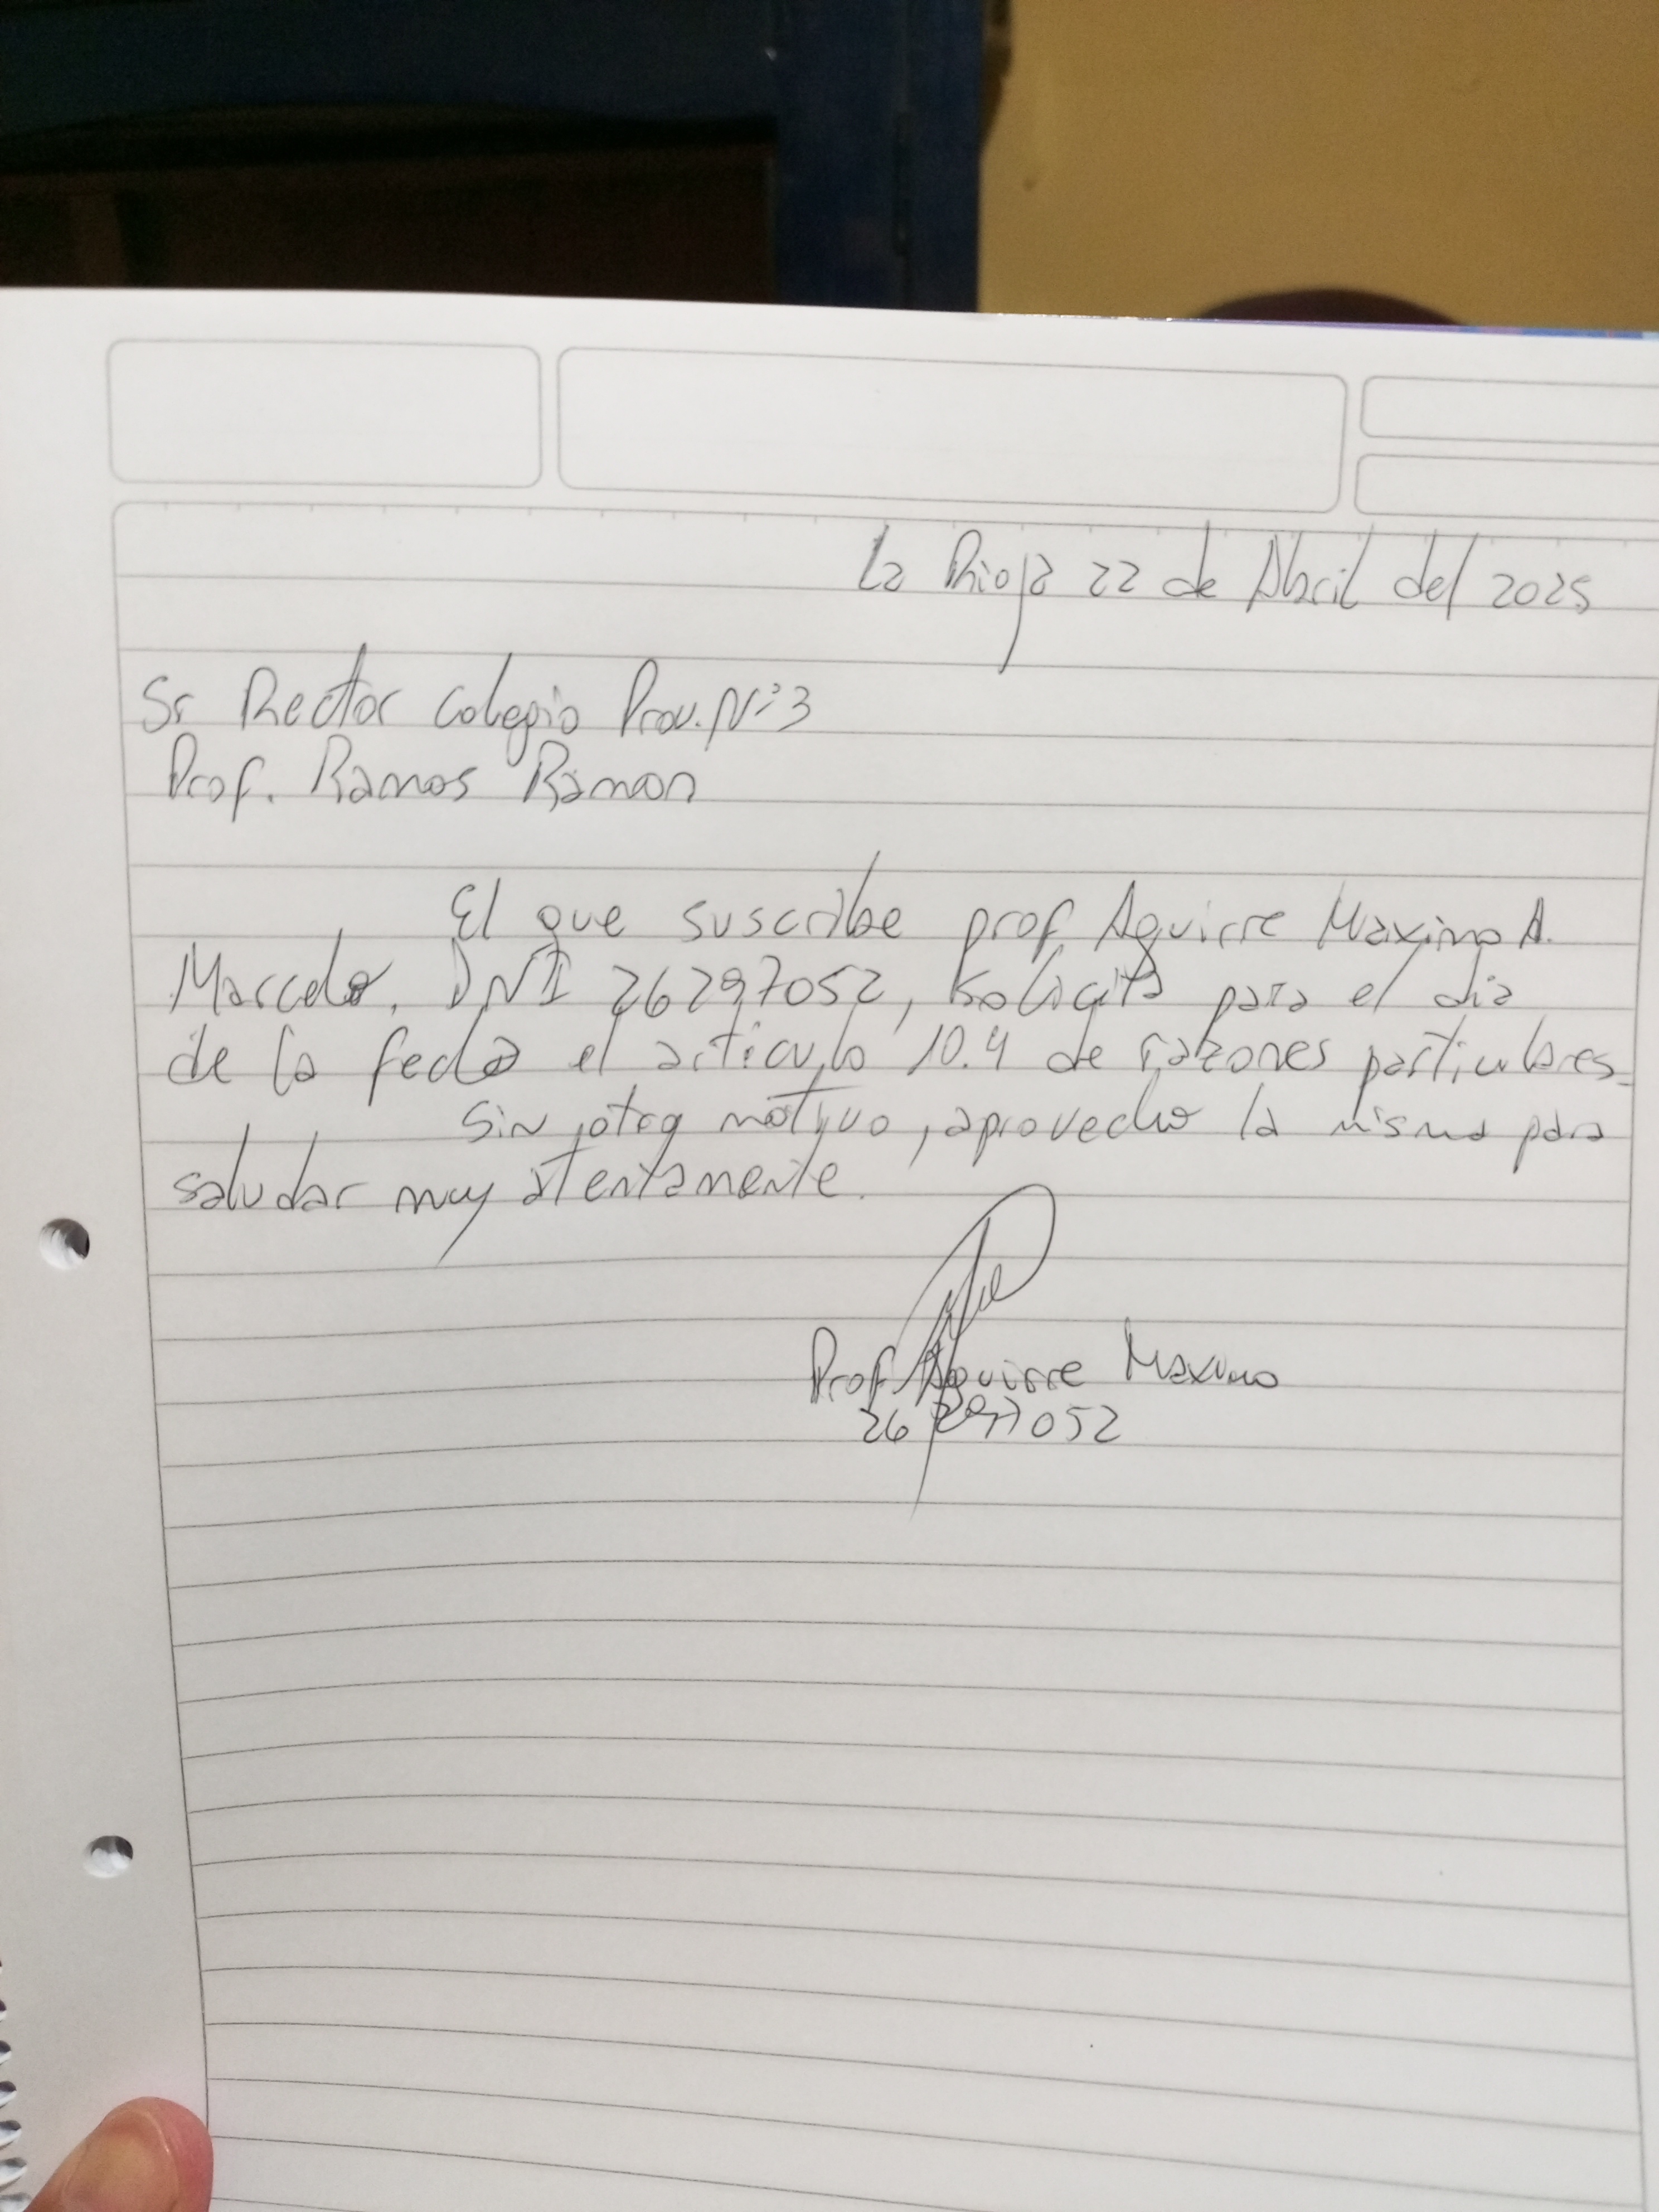 La Rioja 22 de Abril del 2025
Sr Rector Colegio Prov. Nº3
Prof. Ramos Ramon
El que suscribe prof Aguirre Maximo A.
Marcelo. DNI 26297052, solicita para el dia
de la fecha el articulo 10.4 de razones particulares.
Sin otro motivo, aprovecho la misma para
saludar muy atentamente.
Prof Aguirre Maximo
26297052